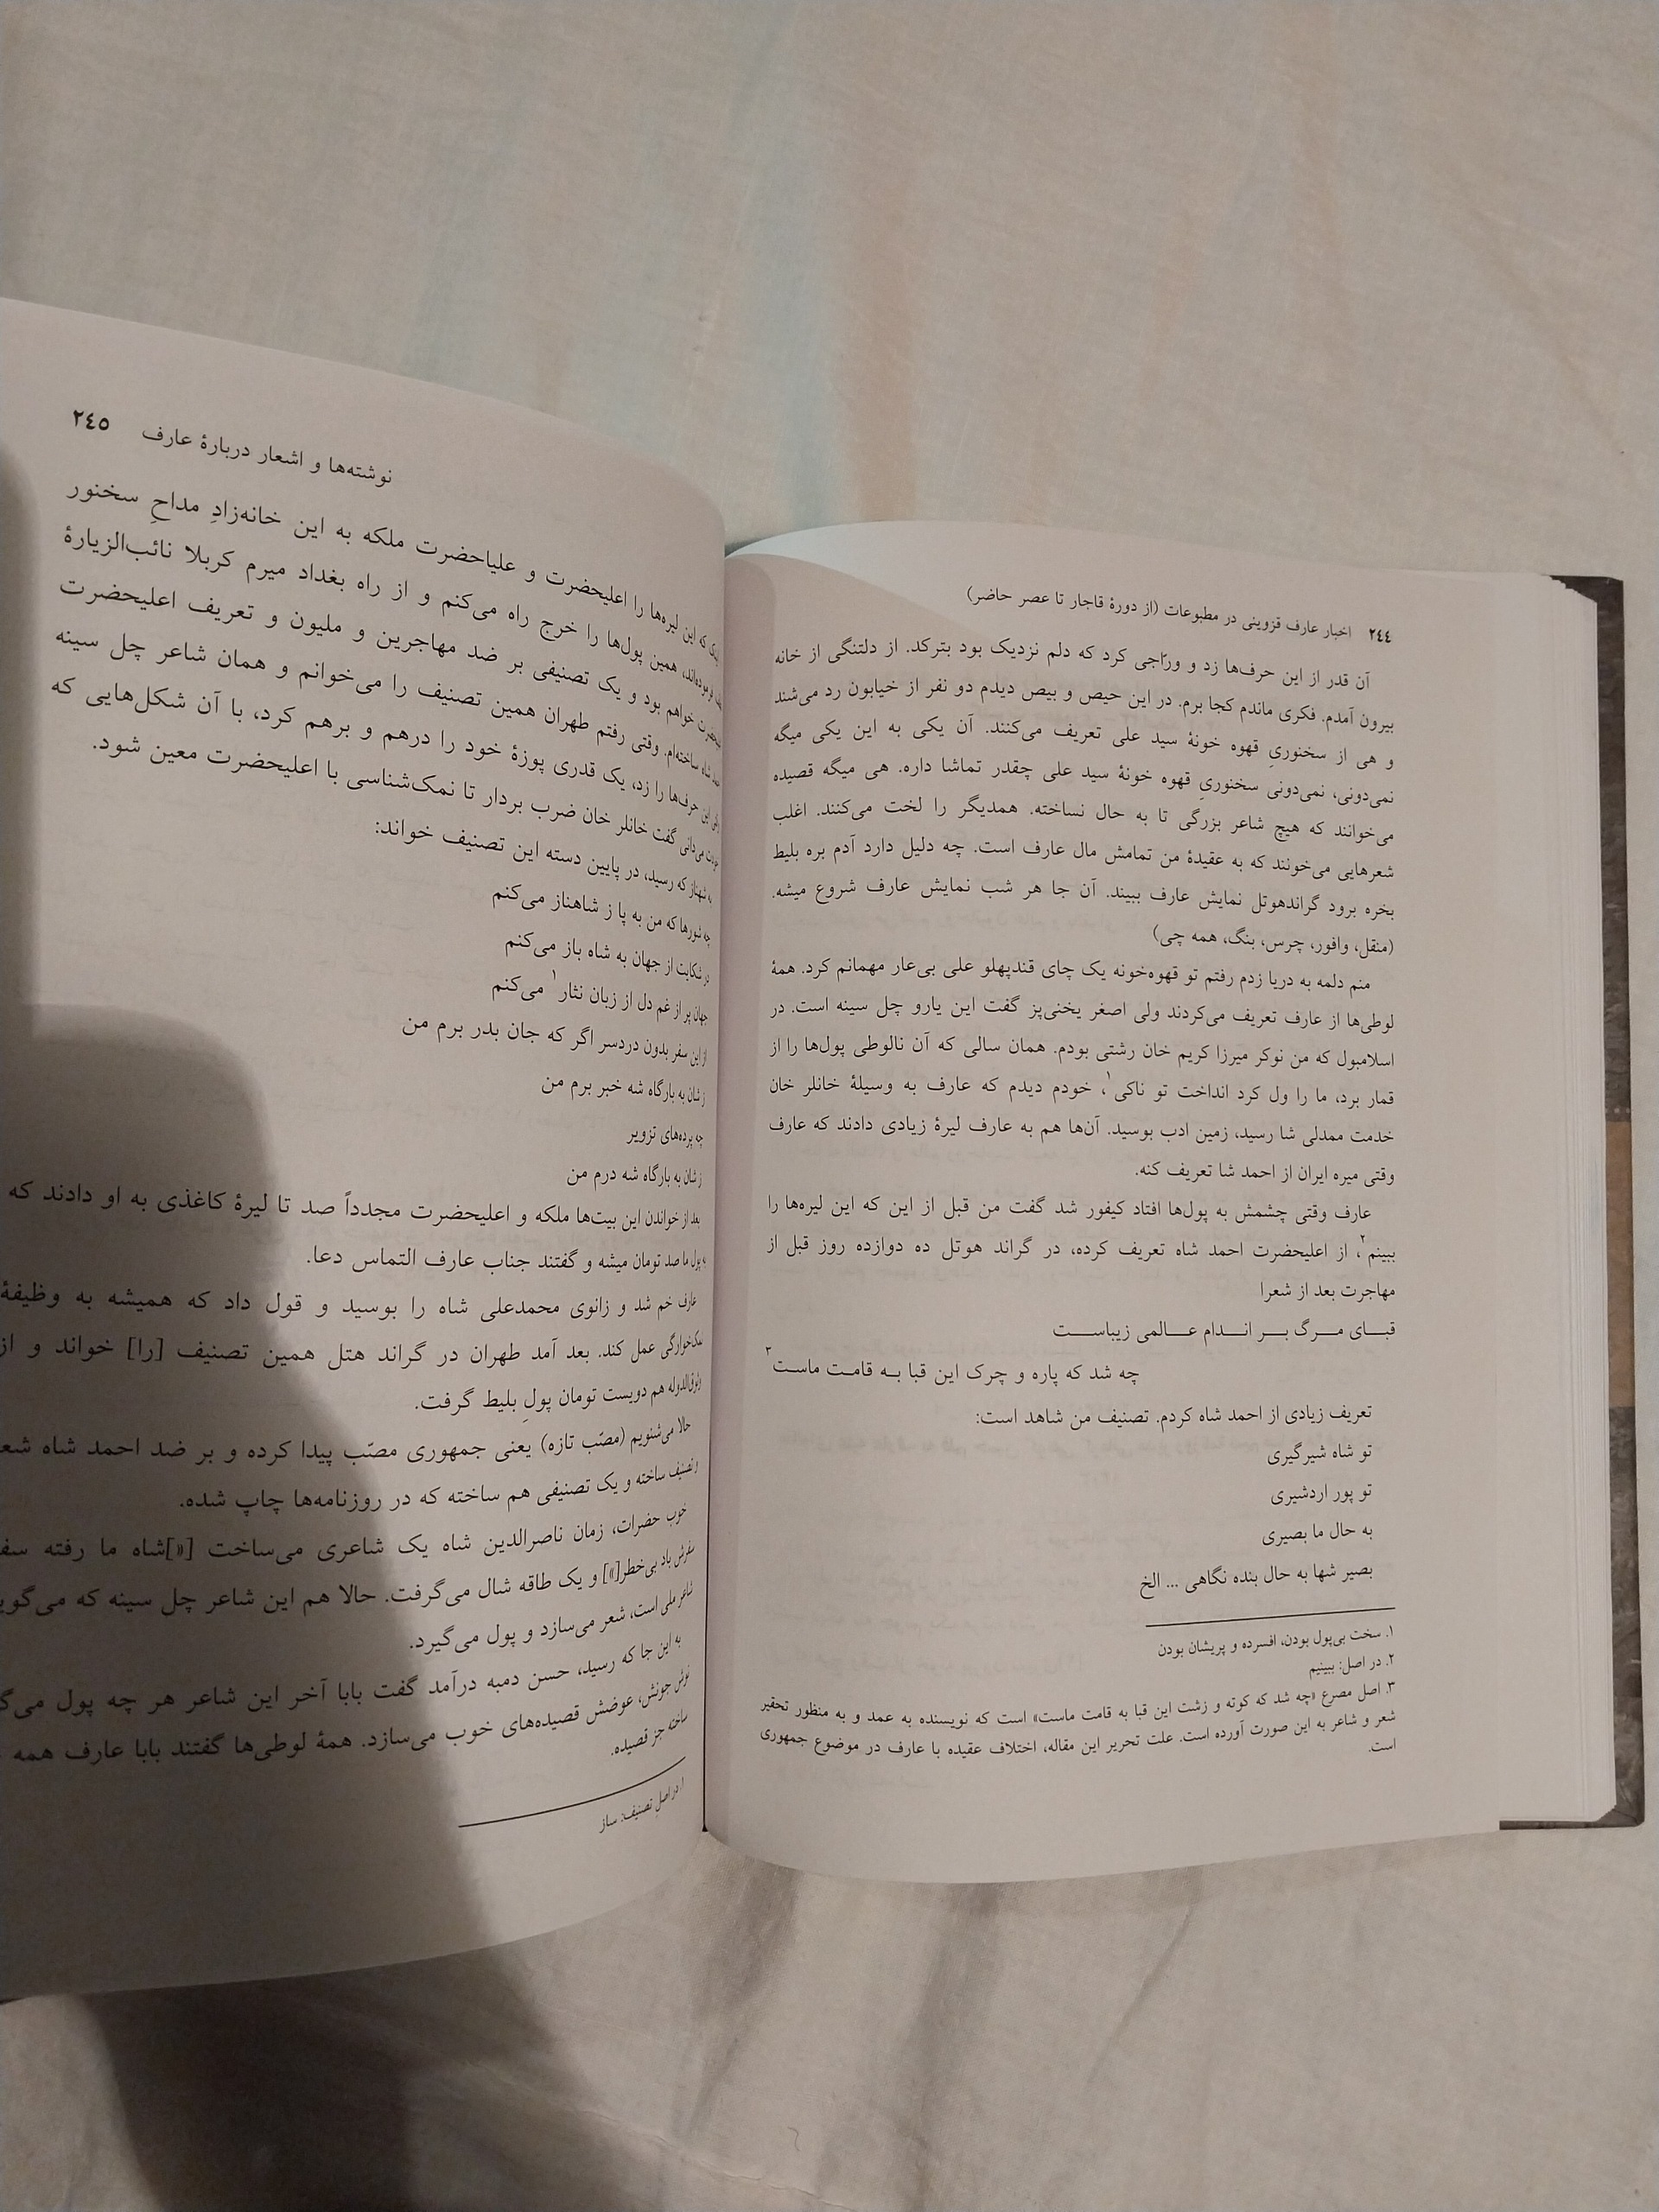 ٢٤٤ اخبار عارف قزوینی در مطبوعات (از دورهٔ قاجار تا عصر حاضر)
آن قدر از این حرف‌ها زد و ورّاجی کرد که دلم نزدیک بود بترکد. از دلتنگی از خانه
بیرون آمدم. فکری ماندم کجا برم. در این حیص و بیص دیدم دو نفر از خیابون رد می‌شند
و هی از سخنوریِ قهوه خونهٔ سید علی تعریف می‌کنند. آن یکی به این یکی میگه
نمی‌دونی، نمی‌دونی سخنوریِ قهوه خونهٔ سید علی چقدر تماشا داره. هی میگه قصیده
می‌خوانند که هیچ شاعر بزرگی تا به حال نساخته. همدیگر را لخت می‌کنند. اغلب
شعرهایی می‌خونند که به عقیدهٔ من تمامش مال عارف است. چه دلیل دارد آدم بره بلیط
بخره برود گراندهوتل نمایش عارف ببیند. آن جا هر شب نمایش عارف شروع میشه.
(منقل، وافور، چرس، بنگ، همه چی)
منم دلمه به دریا زدم رفتم تو قهوه‌خونه یک چای قندپهلو علی بی‌عار مهمانم کرد. همهٔ
لوطی‌ها از عارف تعریف می‌کردند ولی اصغر یخنی‌پز گفت این یارو چل سینه است. در
اسلامبول که من نوکر میرزا کریم خان رشتی بودم. همان سالی که آن نالوطی پول‌ها را از
قمار برد، ما را ول کرد انداخت تو ناکی۱، خودم دیدم که عارف به وسیلهٔ خانلر خان
خدمت ممدلی شا رسید، زمین ادب بوسید. آن‌ها هم به عارف لیرهٔ زیادی دادند که عارف
وقتی میره ایران از احمد شا تعریف کنه.
عارف وقتی چشمش به پول‌ها افتاد کیفور شد گفت من قبل از این که این لیره‌ها را
ببینم۲، از اعلیحضرت احمد شاه تعریف کرده، در گراند هوتل ده دوازده روز قبل از
مهاجرت بعد از شعرا
قبـــای مـــرگ بـــر انـــدام عـــالمی زیباســـت
چه شد که پاره و چرک این قبا به قامت ماست۳
تعریف زیادی از احمد شاه کردم. تصنیف من شاهد است:
تو شاه شیرگیری
تو پور اردشیری
به حال ما بصیری
بصیر شها به حال بنده نگاهی ... الخ
۱. سخت بی‌پول بودن، افسرده و پریشان بودن
۲. در اصل: ببینیم
۳. اصل مصرع «چه شد که کوته و زشت این قبا به قامت ماست» است که نویسنده به عمد و به منظور تحقیر
شعر و شاعر به این صورت آورده است. علت تحریر این مقاله، اختلاف عقیده با عارف در موضوع جمهوری
است.
نوشته‌ها و اشعار دربارهٔ عارف ٢٤٥
که این لیره‌ها را اعلیحضرت و علیاحضرت ملکه به این خانه‌زادِ مداحِ سخنور
همین پول‌ها را خرج راه می‌کنم و از راه بغداد میرم کربلا نائب‌الزیارهٔ
خواهم بود و یک تصنیفی بر ضد مهاجرین و ملیون و تعریف اعلیحضرت
شاه ساخته‌ام. وقتی رفتم طهران همین تصنیف را می‌خوانم و همان شاعر چل سینه
این حرف‌ها را زد، یک قدری پوزهٔ خود را درهم و برهم کرد، با آن شکل‌هایی که
می‌دانی گفت خانلر خان ضرب بردار تا نمک‌شناسی با اعلیحضرت معین شود.
به شهناز که رسید، در پایین دسته این تصنیف خواند:
چه شورها که من به پا ز شاهناز می‌کنم
در شکایت از جهان به شاه باز می‌کنم
جهان پر از غم دل از زبان نثار۱ می‌کنم
از این سفر بدون دردسر اگر که جان بدر برم من
ز شان به بارگاه شه خبر برم من
چه پرده‌های تزویر
ز شان به بارگاه شه درم من
بعد از خواندن این بیت‌ها ملکه و اعلیحضرت مجدداً صد تا لیرهٔ کاغذی به او دادند که
به پول ما صد تومان میشه و گفتند جناب عارف التماس دعا.
عارف خم شد و زانوی محمدعلی شاه را بوسید و قول داد که همیشه به وظیفهٔ
نمک‌خوارگی عمل کند. بعد آمد طهران در گراند هتل همین تصنیف [را] خواند و از
وثوق‌الدوله هم دویست تومان پولِ بلیط گرفت.
حالا می‌شنویم (مصّب تازه) یعنی جمهوری مصّب پیدا کرده و بر ضد احمد شاه
و تصنیف ساخته و یک تصنیفی هم ساخته که در روزنامه‌ها چاپ شده.
خوب حضرات، زمان ناصرالدین شاه یک شاعری می‌ساخت [«]شاه ما رفته
سفرش باد بی‌خطر[»] و یک طاقه شال می‌گرفت. حالا هم این شاعر چل سینه که
شاعر ملی است، شعر می‌سازد و پول می‌گیرد.
به این جا که رسید، حسن دمبه درآمد گفت بابا آخر این شاعر هر چه پول
نوش جونش، عوضش قصیده‌های خوب می‌سازد. همهٔ لوطی‌ها گفتند بابا عارف همه
ساخته جز قصیده.
۱. در اصلِ تصنیف: ساز